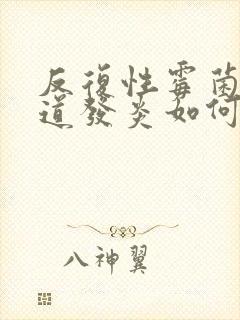 反復性霉菌
道發炎如何
八神翼